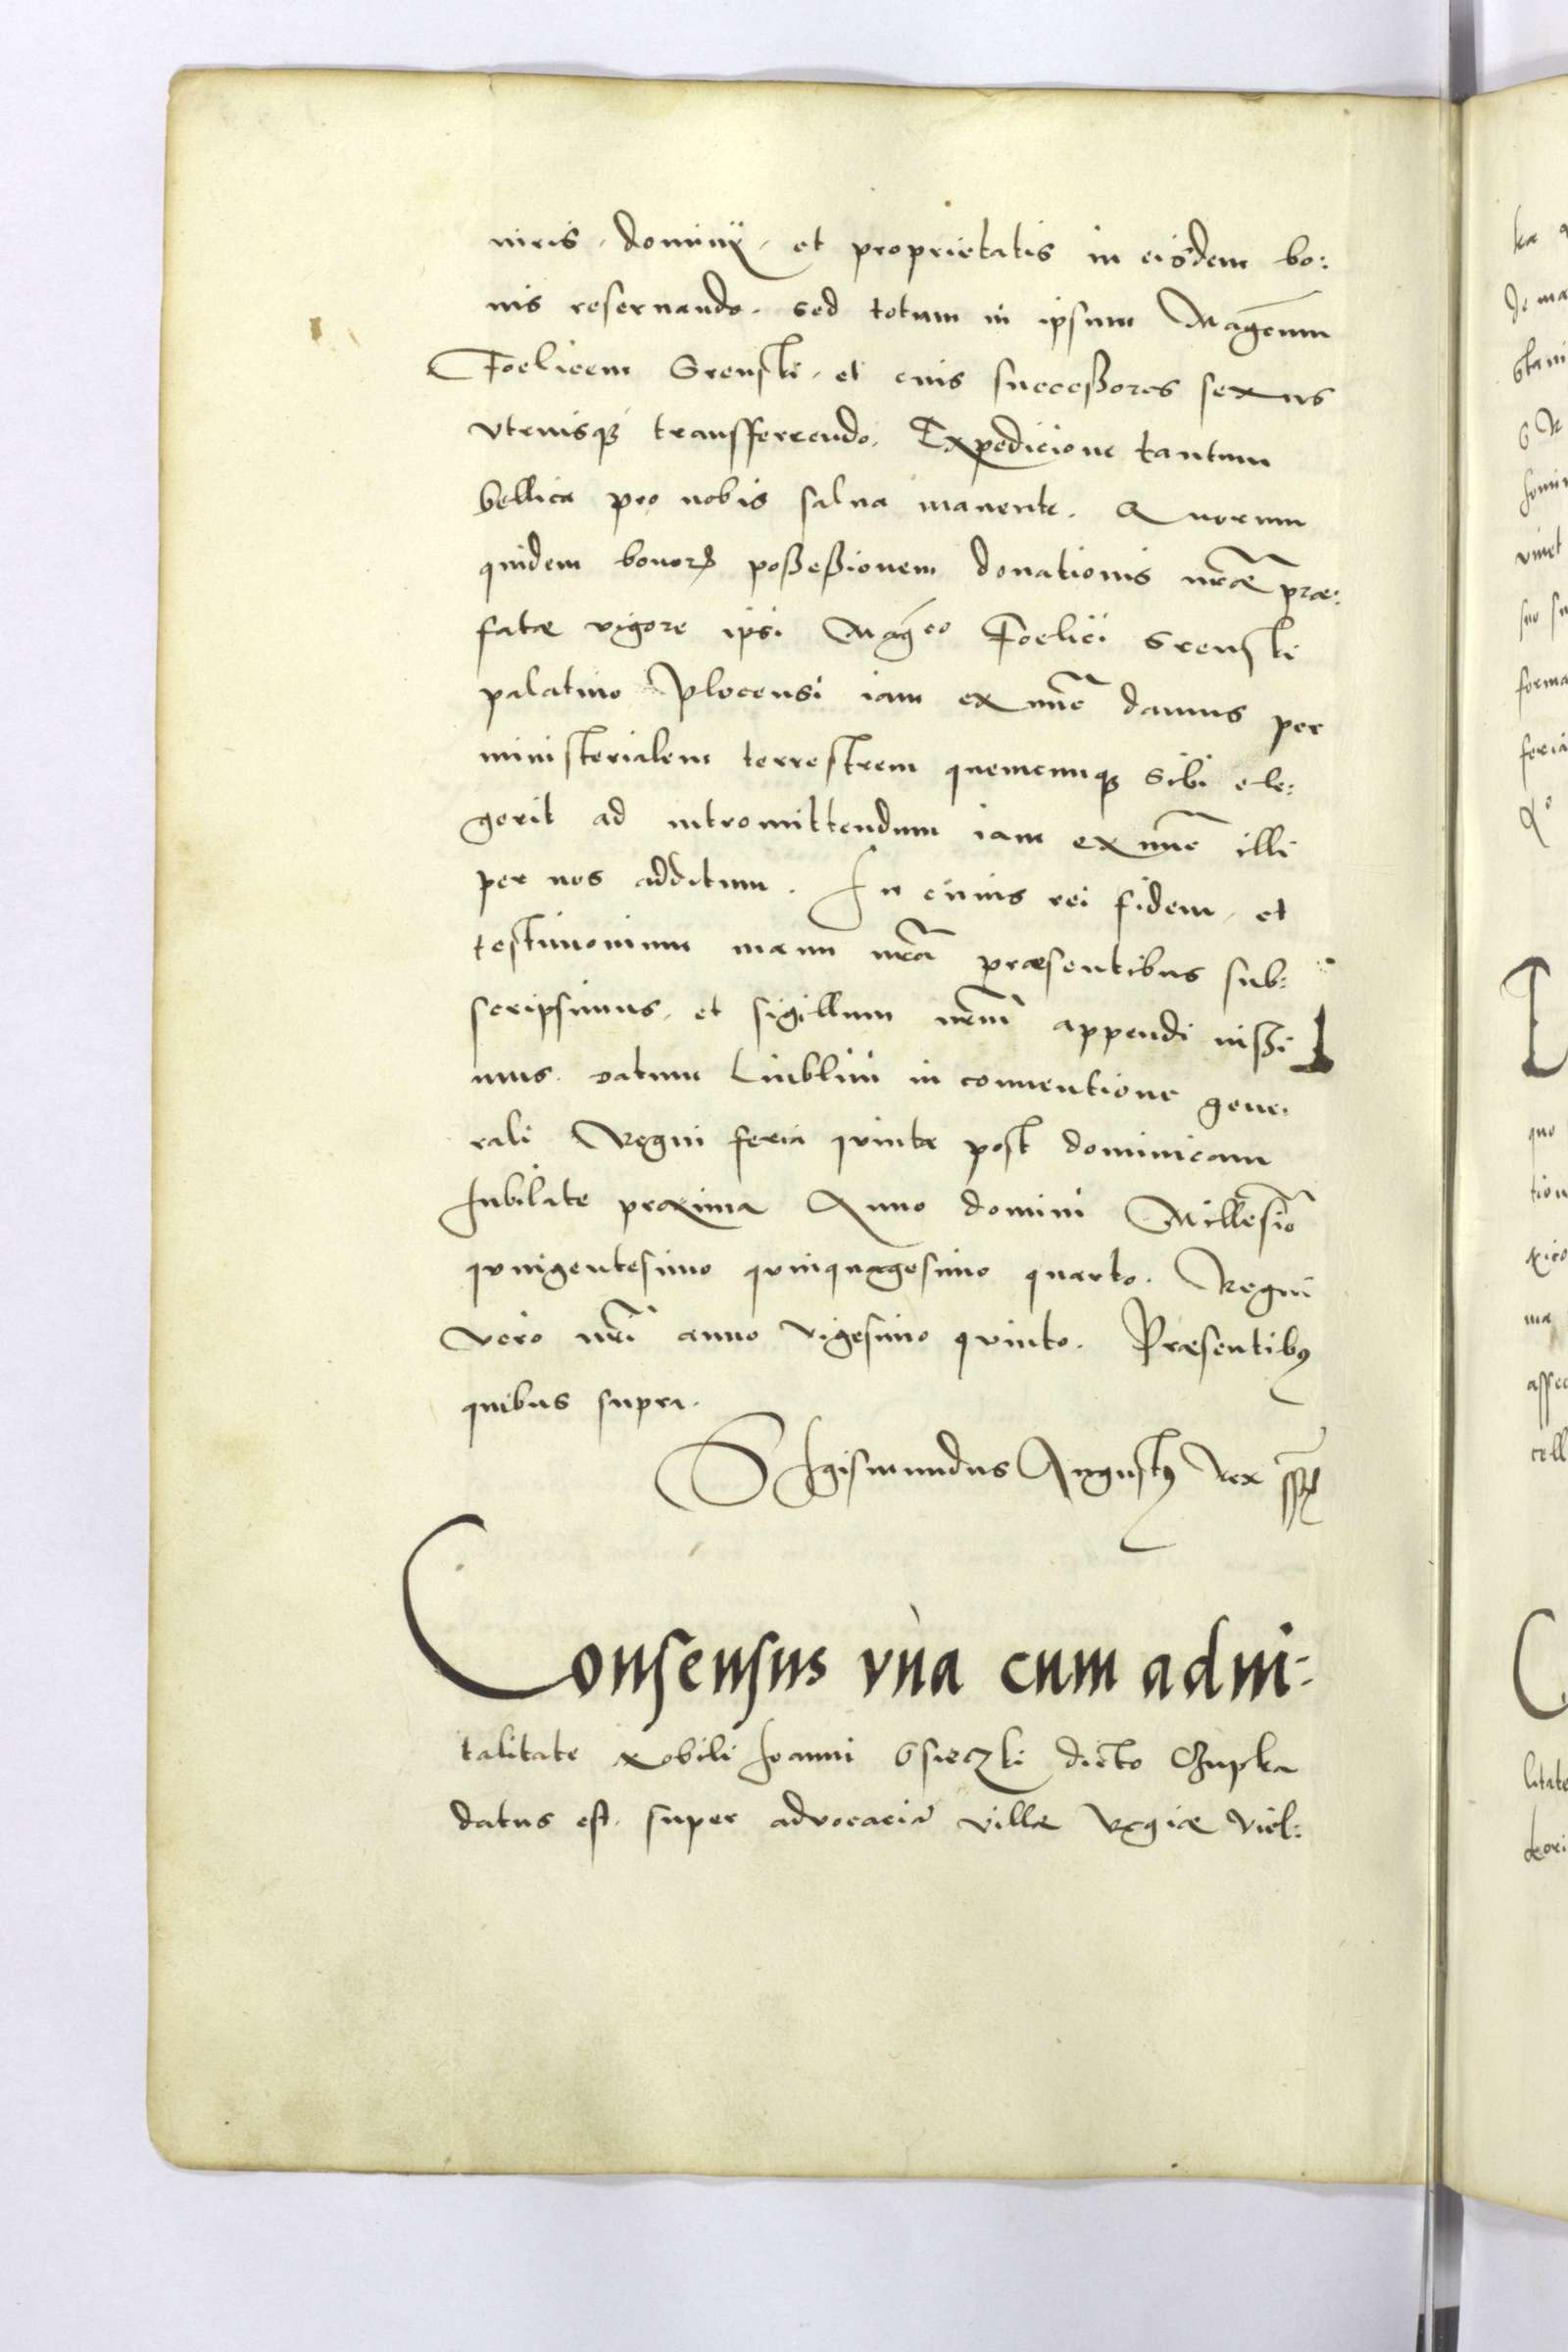 iuris, dominij, et proprietatis in eisdem bo:
nis reseruando. sed totum in ipsum Mag͞cum
Foelicem Srenski, et eius successores sexus
vtriusq₃ transfferrendo. Expedicione tantum
bellica pro nobis salua manente. Quorum
quidem bonorꝝ possessionem donationis nr̃æ præ:
fatæ vigore ipsi Mag͞co Foelici Srenski
palatino Plocensi iam ex nũc damus per
ministerialem terrestrem quemcunq₃ sibi ele:
gerit ad intromittendum iam ex nũc illi
per nos additum. In cuius rei fidem, et
testimonium manu nr̃a præsentibus sub:
scripsimus, et sigillum nr̃m appendi iussi
mus. datum Liublini in conuentione gene:
rali Regni feria quinta post dominicam
Iubilate proxima Anno domini Millesi͞o
quingentesimo quinquagesimo quarto. Regni
vero nr̃i anno vigesimo quinto. Præsentibꝰ
quibus supra.
Sigismundus Augustꝰ Rex s̃s̃t
Consensus vna cum adui:
talitate Nobili Joanni Gsieczki dicto Czupka
datus est. super aduocaciã villæ Regiæ Viel: